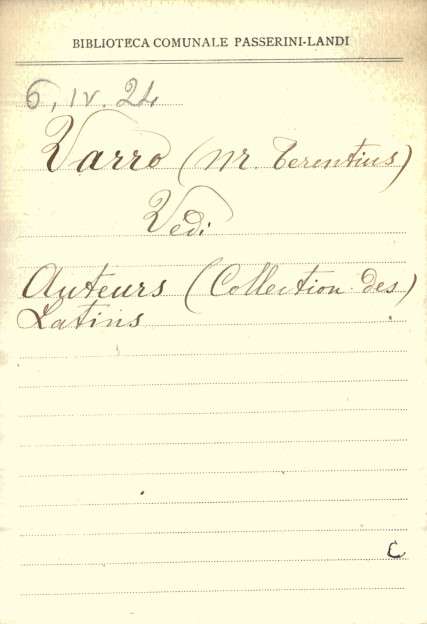 BIBLIOTECA COMUNALE PASSERINI-LANDI
6, IV. 24
Varro (M. Terentius)
Vedi
Auteurs (Collection des)
Latins
C